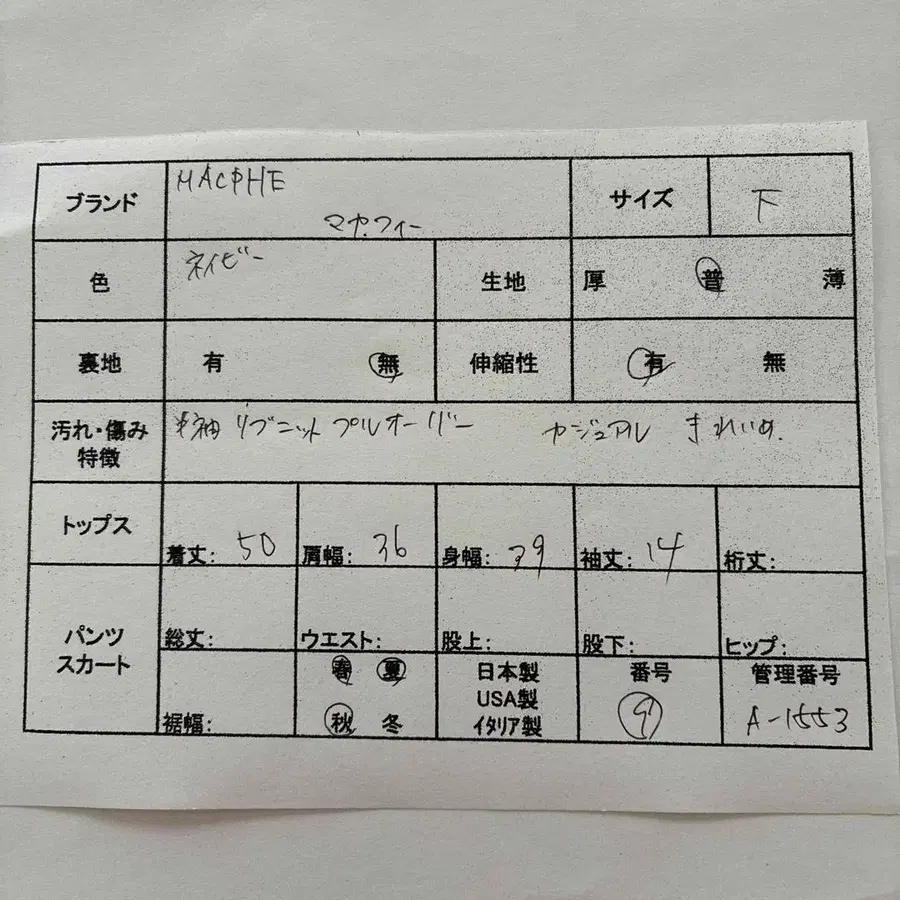 ブランド MACPHE サイズ 下
マカフィー
色 ネイビー 生地 厚 普 薄
裏地 有 無 伸縮性 有 無
汚れ・傷み 半袖 リブニット プルオーバー カジュアル きれいめ.
特徴
トップス 着丈: 50 肩幅: 36 身幅: 39 袖丈: 14 裄丈:
パンツ
スカート
総丈: ウエスト: 股上: 股下: ヒップ:
裾幅: 春 夏 日本製 番号 管理番号
秋 冬 USA製 9 A-1553
イタリア製